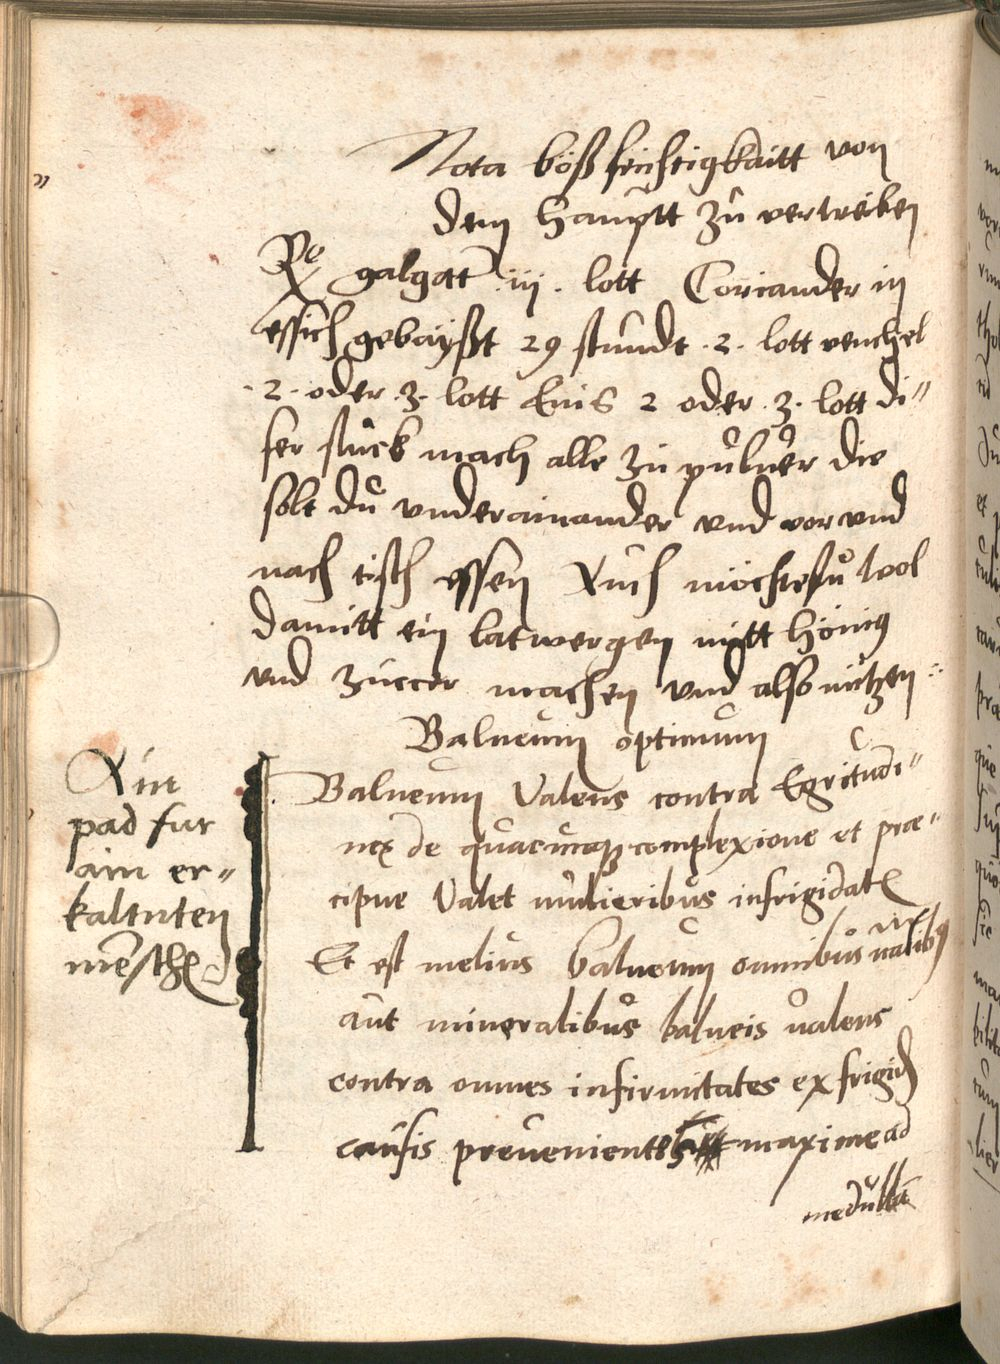 Nota böß feichtigkaitt von
dem hauptt zu vertreiben
Re galgatt iij. lott Coriander in
essich gebayßt 29 stundt .2. lott venchel
.2. oder .3. lott Enis 2 oder .3. lott di"
ser stuck mach alle zu puluer die
solt du underainander und vor und
nach tisch essen Auch möchtestu wol
damitt ein latwergen mitt hönig
und zuccer machen und also nützen
Balneum optimum
Balneum Valens contra Egritudi"
nes de quacunque complexione et præ"
cipue Valet mulieribus infrigidatis
Et est melius balneum omnibus
aut mineralibus balneis valens
contra omnes infirmitates ex frigidis
causis prevenientes maxime ad
medullas
Ain
pad fur
ain er"
kaltuten
mensche